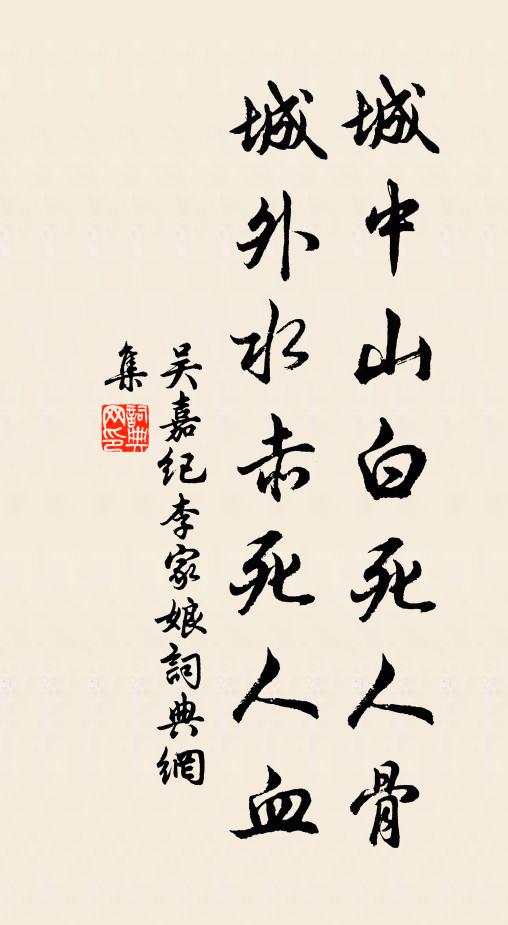 城中山白死人骨
城外水赤死人血
吴嘉纪李家娘詞典網
集
詞典网印